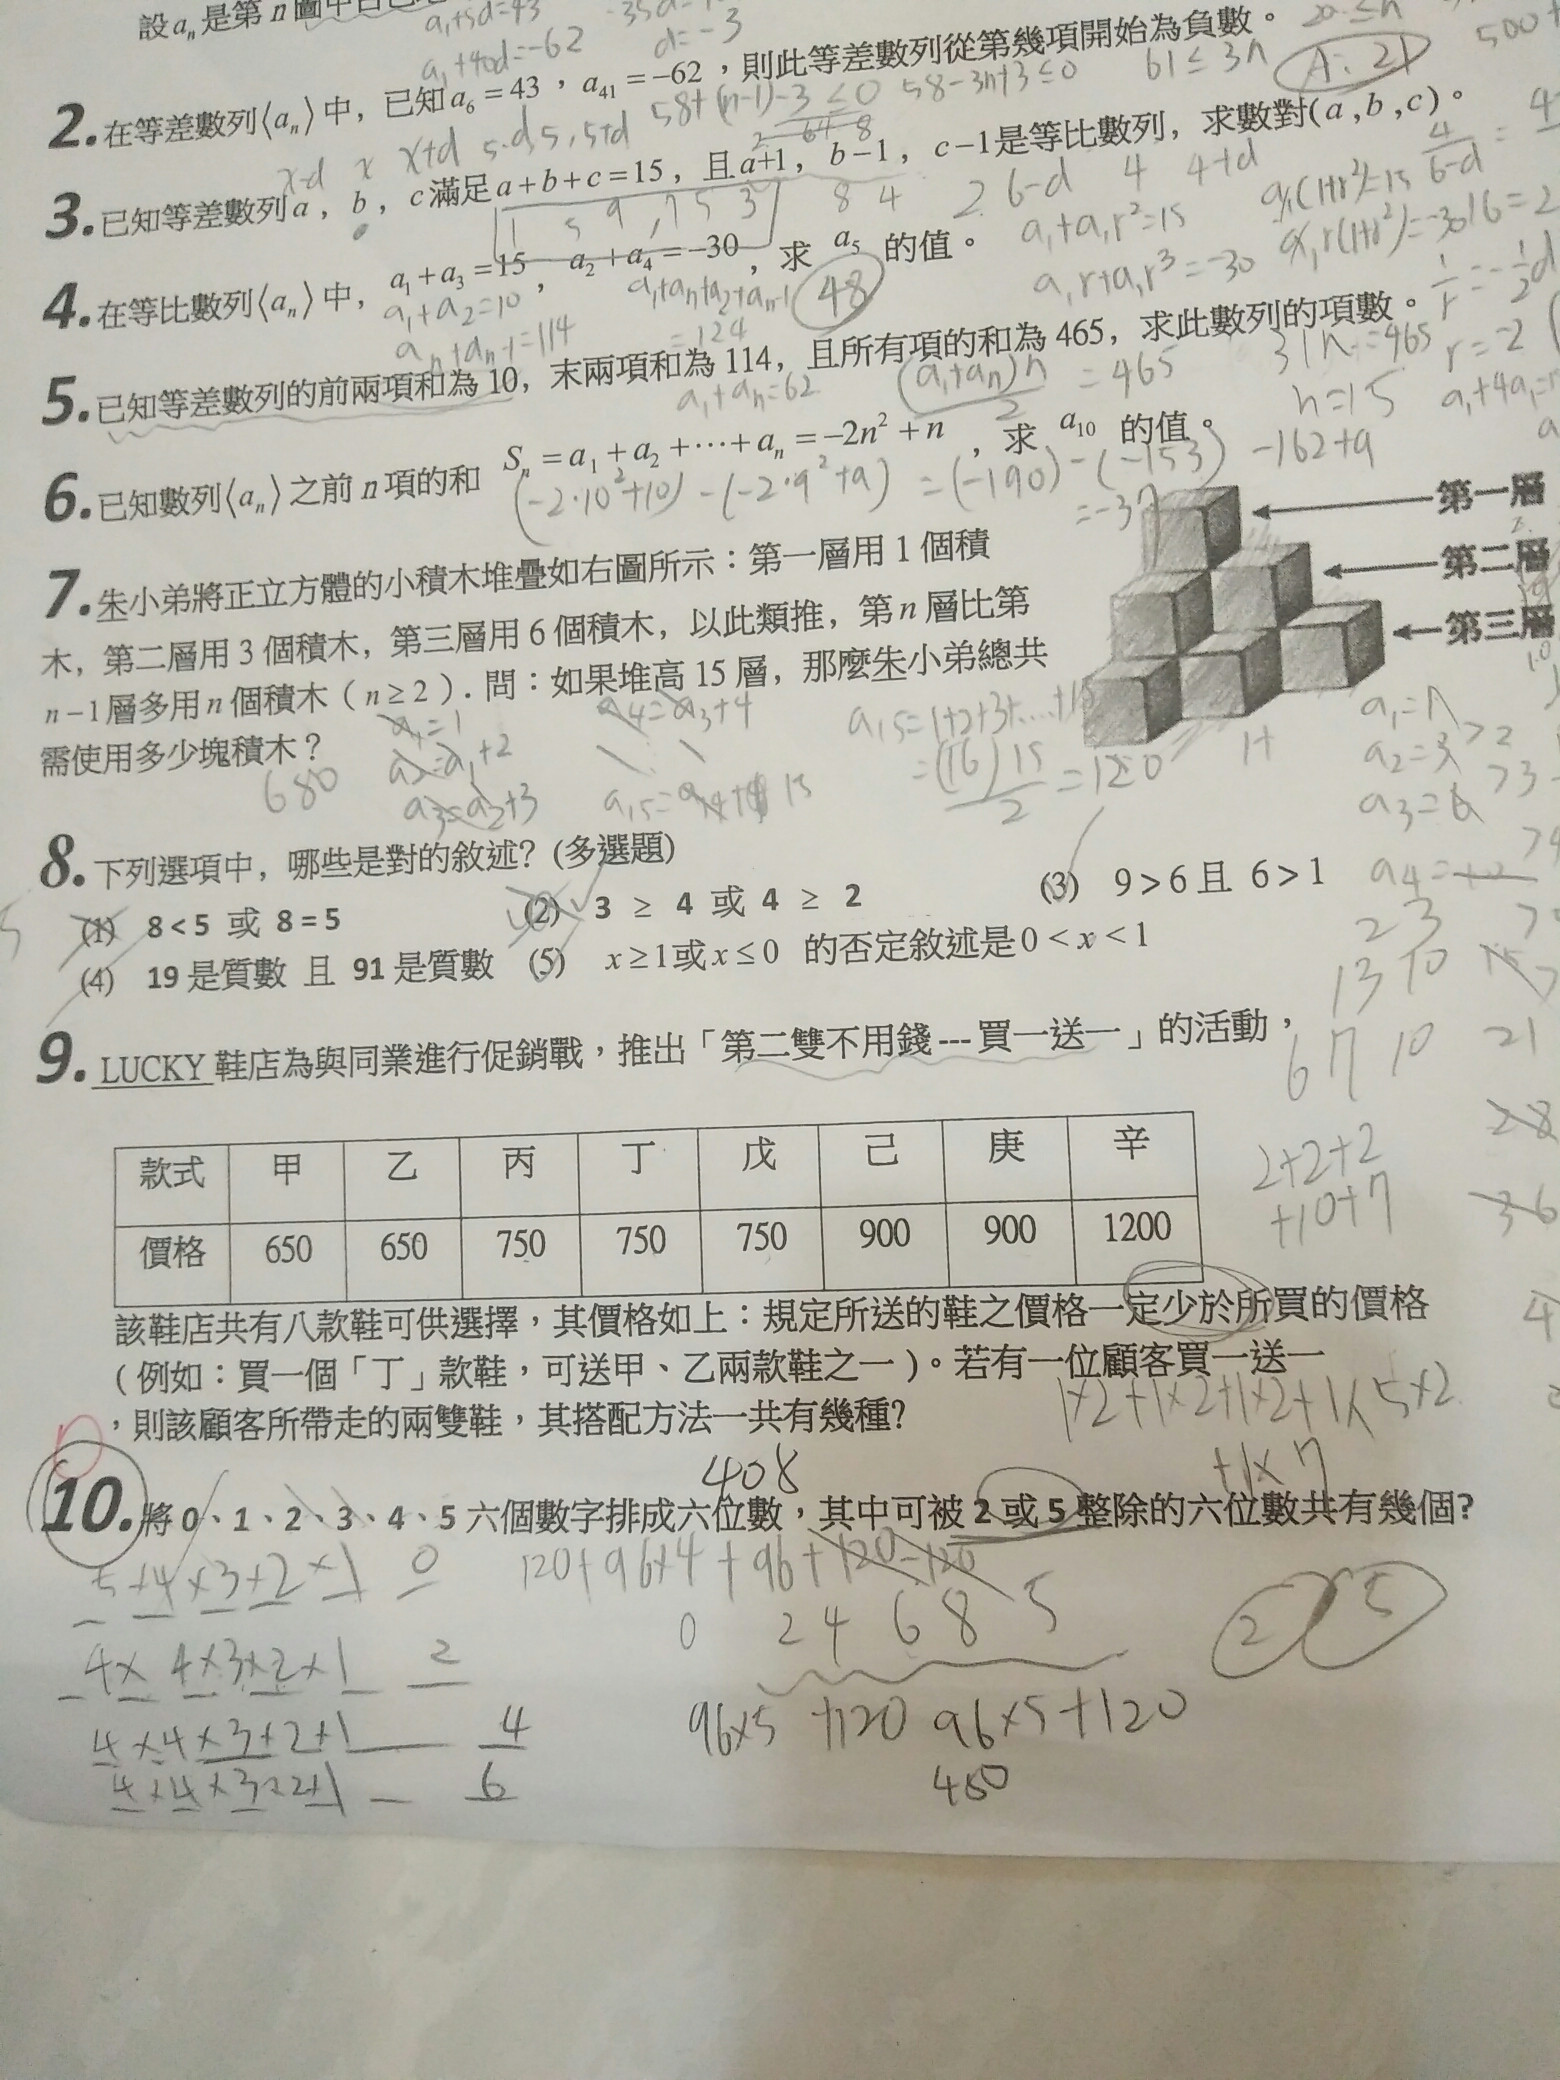 設aₙ是第n圖中
a₁+5d=43
a₁+40d=-62
d=-3
2.在等差數列⟨aₙ⟩中，已知a₆=43，a₄₁=-62，則此等差數列從第幾項開始為負數。
58+(n-1)-3≤0 58-3n+3≤0 61≤3n A:21
x-d x x+d 5-d,5,5+d
3.已知等差數列a，b，c滿足a+b+c=15，且a+1，b-1，c-1是等比數列，求數對(a,b,c)。
1 5 9, 7 5 3 8 4 2 6-d 4 4+d
4.在等比數列⟨aₙ⟩中，a₁+a₃=15，a₂+a₄=-30，求 a₅ 的值。
48
a₁+a₁r²=15
a₁r+a₁r³=-30
a₁(1+r²)=15
a₁r(1+r²)=-30
r=-2
a₁+a₂=10
aₙ+aₙ₋₁=114
a₁+aₙ+a₂+aₙ₋₁
=124
5.已知等差數列的前兩項和為10，末兩項和為114，且所有項的和為465，求此數列的項數。
a₁+aₙ=62 (a₁+aₙ)n/2 =465 31n=465
n=15
6.已知數列⟨aₙ⟩之前n項的和 Sₙ=a₁+a₂+⋯+aₙ=-2n²+n，求 a₁₀ 的值。
(-2·10²+10)-(-2·9²+9) =(-190)-(-153) -162+9
=-37
第一層
第二層
第三層
7.朱小弟將正立方體的小積木堆疊如右圖所示：第一層用1個積
木，第二層用3個積木，第三層用6個積木，以此類推，第n層比第
n-1層多用n個積木（n≥2）. 問：如果堆高15層，那麼朱小弟總共
需使用多少塊積木？
680
a₁=1
a₂=a₁+2
a₃=a₂+3
a₄=a₃+4
=(16)15/2=120
a₁=1
a₂=3
a₃=6
8.下列選項中，哪些是對的敘述？(多選題)
(1) 8<5 或 8=5 (2) 3 ≥ 4 或 4 ≥ 2 (3) 9>6且 6>1
(4) 19是質數 且 91是質數 (5) x≥1或x≤0 的否定敘述是0<x<1
9.LUCKY鞋店為與同業進行促銷戰，推出「第二雙不用錢---買一送一」的活動，
款式 甲 乙 丙 丁 戊 己 庚 辛
價格 650 650 750 750 750 900 900 1200
2+2+2
+10+7
該鞋店共有八款鞋可供選擇，其價格如上：規定所送的鞋之價格一定少於所買的價格
(例如：買一個「丁」款鞋，可送甲、乙兩款鞋之一)。若有一位顧客買一送一
，則該顧客所帶走的兩雙鞋，其搭配方法一共有幾種?
1×2+1×2+1×2+1×5×2
+1×7
408
10.將0、1、2、3、4、5六個數字排成六位數，其中可被2或5整除的六位數共有幾個?
5×4×3×2×1 0
120+96×4+96+120-120
0 2 4 6 8 5
2 5
4×4×3×2×1 2
4×4×3×2×1 4
4×4×3×2×1 6
96×5+120 96×5+120
480